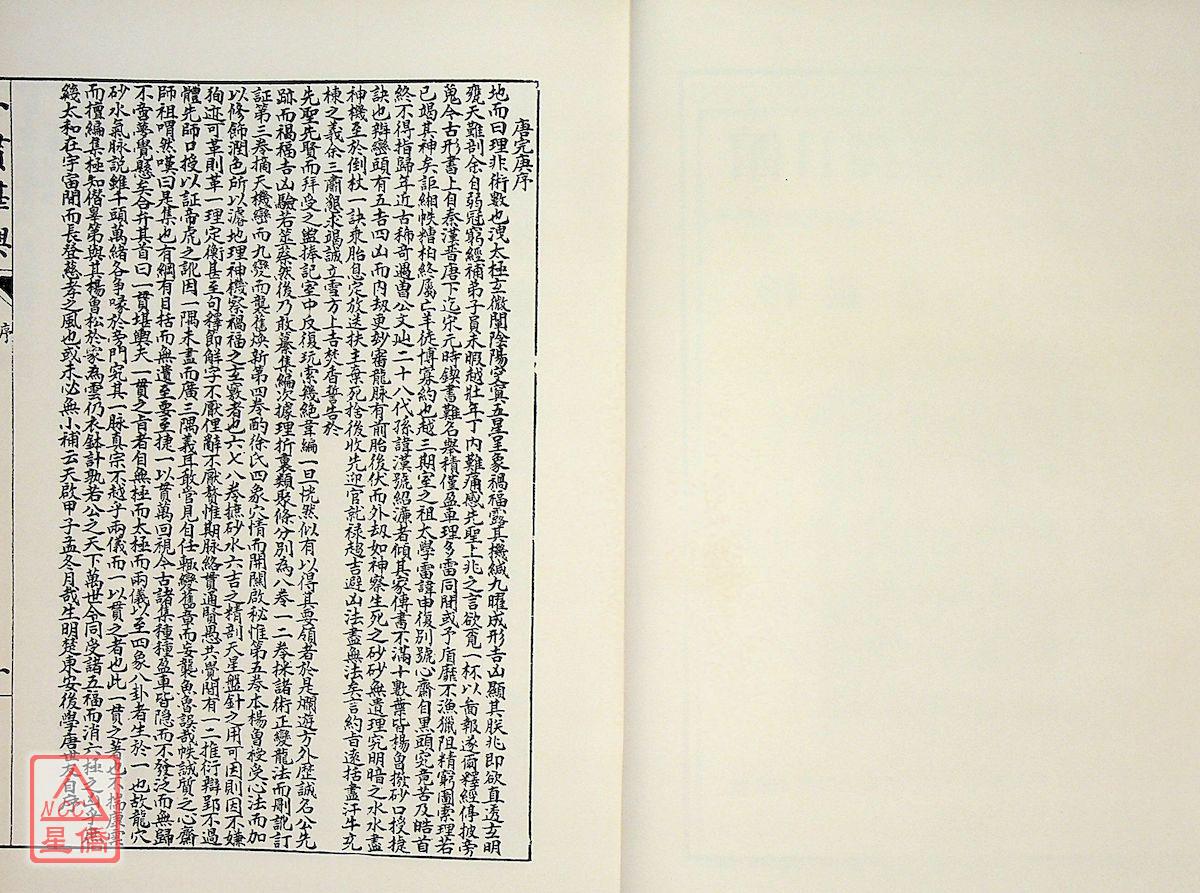 唐完庚序
地而曰理非術數也洩太極玄微闡陰陽窔五星呈象禍福露其機緘九曜成形吉凶顯其朕兆即欲直透玄明
竟天難剖余自弱冠窮經補弟子員未暇越壯年丁內難痛感先聖上兆之言欲覓一杯以啚報遂爾釋經停披旁
蒐今古形書上自秦漢晋唐下迄宋元時鍥書難名舉積僅盈車理多雷同間或予盾靡不漁獵阻精窮圖索理若
已竭其神矣詎緗帙糟柏終屬亡羊徒博寡約也越三期室之祖太學雷諱由復別號心齋自黑頭究竟苦及皓首
終不得指歸年近古稀奇遇曾公文辿二十八代孫諱漢號紹濂者傾其家傳書不滿十數葉皆楊曾撥砂口授捷
訣也辦巒頭有五吉四凶而內刼更妙審龍脉有前胎後伏而外刼如神察生死之砂砂無遺理究明暗之水水盡
神機至於倒杖一訣乘胎息定放送扶主棄死捨後收先迎官就祿趨吉避凶法盡無法矣言約旨逐括盡汗牛充
棟之義余三肅懇求竭誠立雪方上吉焚香誓告於
先聖先賢而拜受之盥捧記室中反復玩索幾絕韋編一旦恍然似有以得其要領者於是爛遊方外歷誠名公先
跡而禍福吉凶驗若筮蔡然後乃敢纂集編次據理折衷類聚條分別為八卷一二卷採諸術正變龍法而刪訛訂
証第三卷摘天機巒而九變而襲舊煥新第四卷酌徐氏四象穴情而開關啟秘惟第五卷本楊曾授受心法而加
以修飾潤色所以濬地理神機察禍福之玄竅者也六七八卷摭砂水六吉之精剖天星盤針之用可因則因不嫌
狥迹可革則革一理定衡甚至句釋節解字不厭俚辭不厭贅惟期脉絡貫通賢愚共覺間有一二推衍辯郢不過
體先師口授以証帝虎之訛因一隅未盡而廣三隅義耳敢管見自任輒變舊章而妄襲魚魯誤哉帙誠質之心齋
師祖喟然嘆曰是集也有綱有目括而無遺至要至捷一以貫萬回視今古諸集種種盈車皆隱而不發泛而無歸
不啻夢覺懸矣合弁其首曰一貫堪輿夫一貫之旨者自無極而太極而兩儀以至四象八卦者生於一也故龍穴
砂水氣脉說雖千頭萬緒各爭喙於旁門究其一脉真宗不越乎兩儀而一以貫之者也此一貫之著也不揣虛雲
而擅編集極知僭辠第與其楊曾松於家為雲仍衣鉢計孰若公之天下萬世令同受諸五福而消六極之凶乎庶
幾太和在宇宙間而長登慈孝之風也或未必無小補云天啟甲子孟冬月哉生明楚東安後學唐世友自序
一貫堪輿
序
一
NCC
星僑